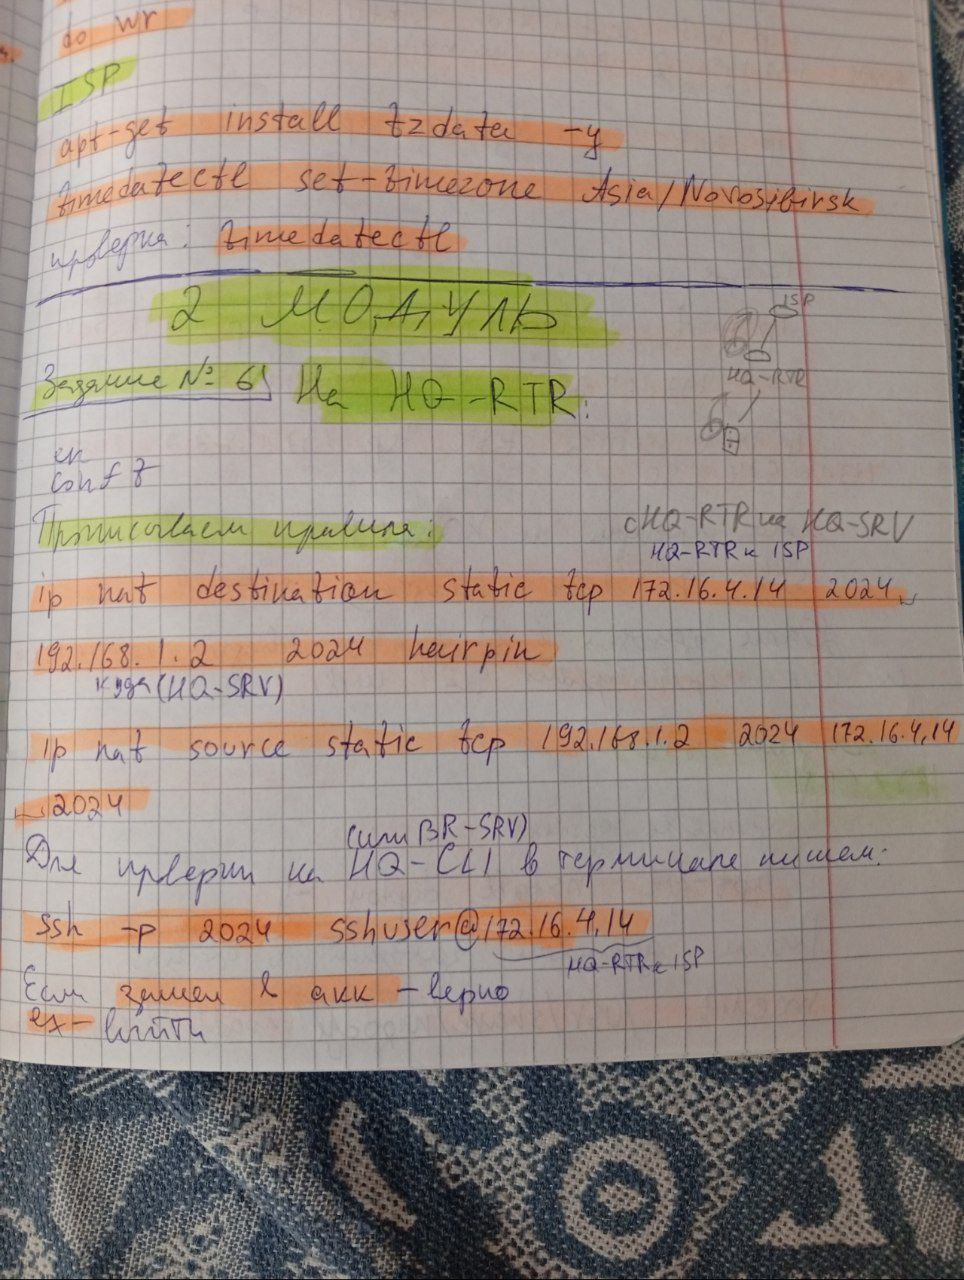 do wr
ISP
apt-get install tzdata -y
timedatectl set-timezone Asia/Novosibirsk
проверка: timedatectl
2 МОДУЛЬ
ISP
HQ-RTR
Задание № 6 На HQ-RTR:
en
conf t
Прописываем правила:
с HQ-RTR на HQ-SRV
HQ-RTR к ISP
ip nat destination static tcp 172.16.4.14 2024
192.168.1.2 2024 hairpin
куда (HQ-SRV)
ip nat source static tcp 192.168.1.2 2024 172.16.4.14
2024
(или BR-SRV)
Для проверки на HQ-CLI в терминале пишем:
ssh -p 2024 sshuser@172.16.4.14
HQ-RTR к ISP
Если зашел в акк - верно
ex - выйти